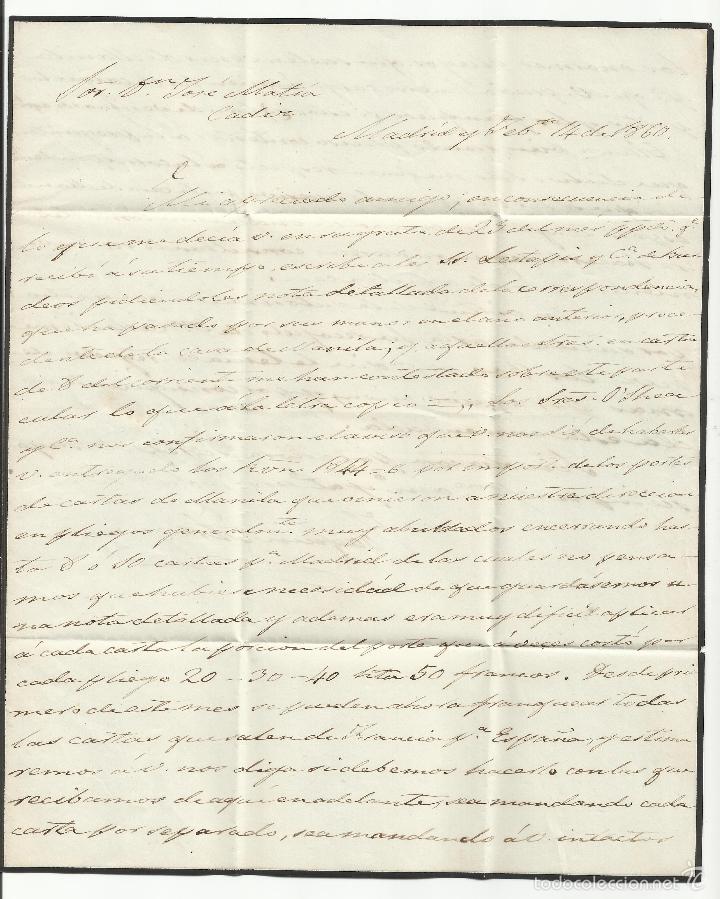 Sor. Dn. José Matía
Cadiz
Madrid y Feb. 14 de 1860.
Mi apreciado amigo; en consecuencia de
lo que me decía v. en su grata de 29 del mes ppdo. q.e
recibí á su tiempo, escribí a los SS. Lestapis y Ca. de Bur
deos pidiendoles nota detallada de la correspondencia,
que ha pasado por sus manos en el año anterior, proce
dente de la casa de Manila; y aquellos Sres. en carta
de 8 del corriente me han contestado sobre este parti
cular lo que á la letra copio = "Los Sres. O'Shea
y Ca. nos confirmaron el aviso que v. nos dió de haberles
v. entregado los 1844-6. por import. de los portes
de cartas de Manila que vinieron á nuestra direccion
en pliegos generalmte. muy abultados encerrando has
ta 8 ó 10 cartas pa. Madrid de las cuales no pensa-
mos que hubiese necesidád de que guardásemos u-
na nota detallada y ademas era muy dificil aplicar
á cada carta la porcion del porte que á veces costó por
cada pliego 20 - 30 - 40 hta 50 francos. Desde pri
mero de este mes se pueden ahora franquear todas
las cartas que salen de Francia pa. España, y estima
remos á v. nos diga si debemos hacerlo con las que
recibamos de aquí en adelante, sea mandando cada
carta por separado, sea mandando á v. intactos
todocoleccion.net